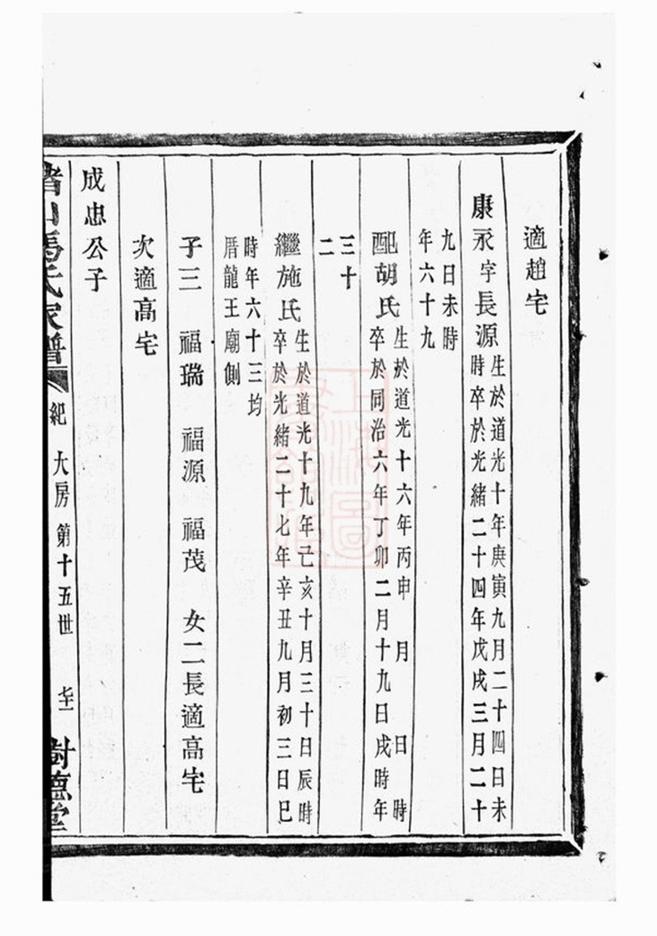 適趙宅
康永字長源生於道光十年庚寅九月二十四日未
時卒於光緒二十四年戊戌三月二十
九日未時
年六十九
配胡氏生於道光十六年丙申 月 日 時
卒於同治六年丁卯二月十九日戌時年
三十
二
繼施氏生於道光十九年己亥十月三十日辰時
卒於光緒二十七年辛丑九月初三日巳
時年六十三均
厝龍王廟側
子三 福瑞 福源 福茂 女二長適高宅
次適高宅
成忠公子
山馮氏家譜 紀 大房 第十五世 樹德堂